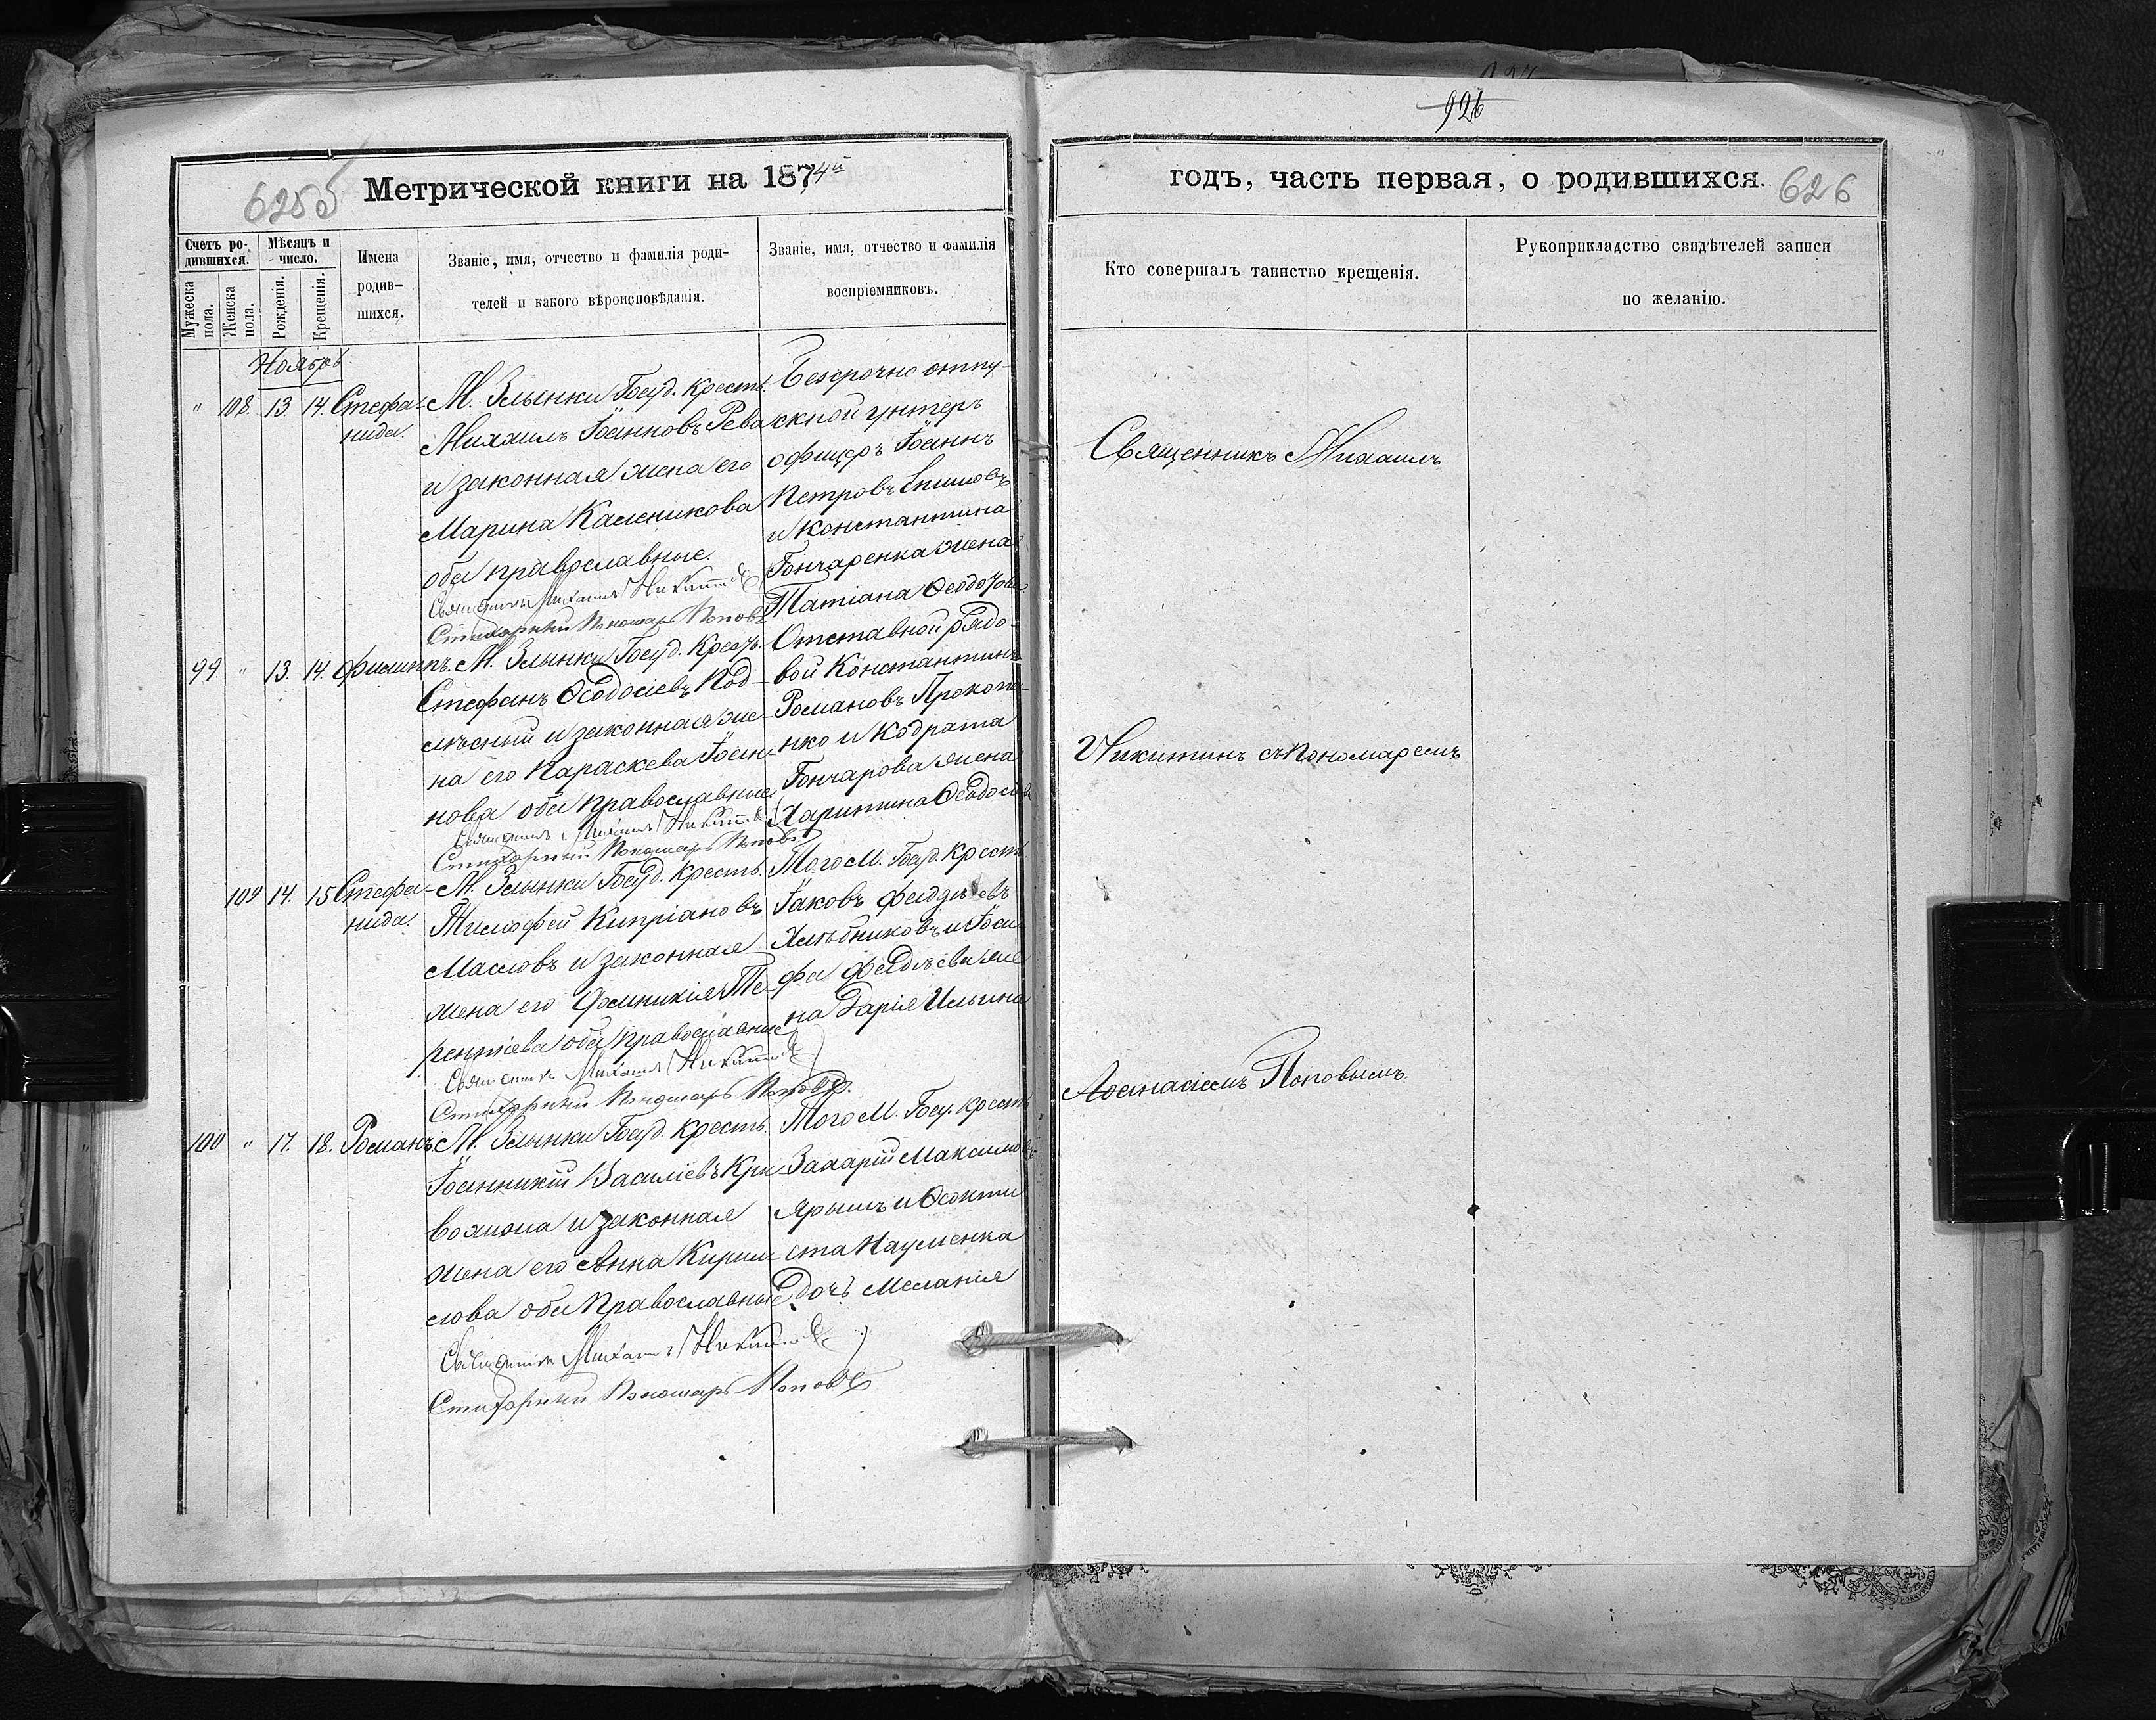 926
Метрической книги на 1874й
625б
годъ, часть первая, о родившихся.
626
Счетъ ро-
дившихся.
Мѣсяцъ и
число.
Мужеска
пола.
Женска
пола.
Рожденія.
Крещенія.
Имена
родив-
шихся.
Званіе, имя, отчество и фамилія роди-
телей и какого вѣроисповѣданія.
Званіе, имя, отчество и фамилія
воспріемниковъ.
Кто совершалъ таинство крещенія.
Рукоприкладство свидѣтелей записи
по желанію.
Ноябрь
" 108. 13. 14. Стефа-
нида.
М. Злынки Госуд. Крестъ.
Михаилъ Іоанновъ Рева
и законная жена его
Марина Каленикова
оба православные.
Священникъ Михаилъ Никитинъ
Стихарный Пономарь Поповъ
Безсрочно отпу-
скной унтеръ
офицеръ Іоаннъ
Петровъ
и Константина
Гончаренка жена
Татіана Ѳеодотова
99. " 13. 14. Филиппъ.
М. Злынки Госуд. Крестъ.
Стефанъ Ѳеодосіевъ Под-
лѣсный и законная же-
на его Параскева Іоан-
нова оба православные
Священникъ Михаилъ Никитинъ
Стихарный Пономарь Поповъ
Отставной рядо-
вой Константинъ
Романовъ Прокопе-
нко и Кодрата
Гончарова жена
Харитина Ѳеодосіева
109 14. 15 Стефа-
нида.
М. Злынки Госуд. Крестъ.
Тимофей Кипріановъ
Масловъ и законная
жена его Фотинія Те-
рентіева оба православные
Священникъ Михаилъ Никитинъ
Стихарный Пономарь Поповъ.
Того М. Госуд. Крест.
Іаковъ Фадѣевъ
Хлѣбниковъ и Іоси-
фа Фадѣева же
на Дарія Ильина
100 " 17. 18. Романъ.
М. Злынки Госуд. Крестъ.
Іоанникій Василіевъ Кри-
вохижа и законная
жена его Анна Кирил-
лова оба Православные
Священникъ Михаилъ Никитинъ
Стихарный Пономарь Поповъ
Того М. Госу. крест
Захарій Максимовъ
Ярышъ и Ѳеокти
ста Науменка
дочь Меланія
Священникъ Михаилъ
Никитинъ съ Пономаремъ
Аѳанасіемъ Поповымъ.